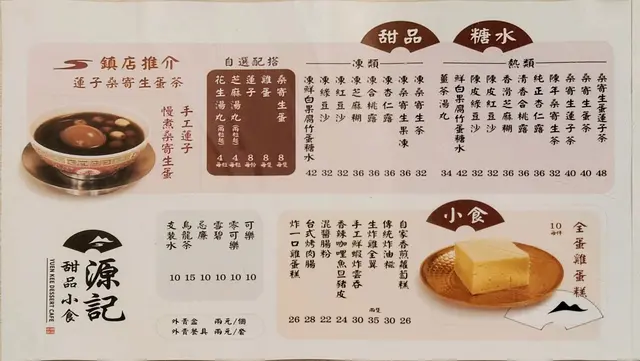 鎮店推介
蓮子桑寄生蛋茶
手工蓮子
慢煮桑寄生蛋
自選配搭
桑寄生蛋 8 每隻
雞蛋 8 每隻
蓮子 8 每份
芝麻湯丸 4 每粒
花生湯丸 4 每粒
甜品 糖水
熱類
桑寄生蛋蓮子茶 48
桑寄生蓮子茶 40
桑寄生蛋茶 40
陳年桑寄生茶 32
純正杏仁露 36
清香合桃露 36
香滑芝麻糊 36
陳皮紅豆沙 32
陳皮綠豆沙 32
鮮白果腐竹蛋糖水 42
薑茶湯丸 34
凍類
凍桑寄生茶 32
凍桑寄生果凍 36
凍杏仁露 36
凍合桃露 36
凍芝麻糊 36
凍紅豆沙 32
凍綠豆沙 32
凍鮮白果腐竹蛋糖水 42
源記
甜品小食
YUEN KEE DESSERT CAFE
可樂 10
零可樂 10
雪碧 10
忌廉 10
烏龍茶 15
支裝水 10
外賣盒 兩元/個
外賣餐具 兩元/套
小食
全蛋雞蛋糕 10 每件
自家香煎蘿蔔糕 26
傳統炸油糍 30
生炸雞全翼 兩隻 35
手工鮮蝦炸雲吞 30
香辣咖哩魚旦豬皮 24
混醬腸粉 22
台式烤肉腸 28
炸一口雞蛋糕 26